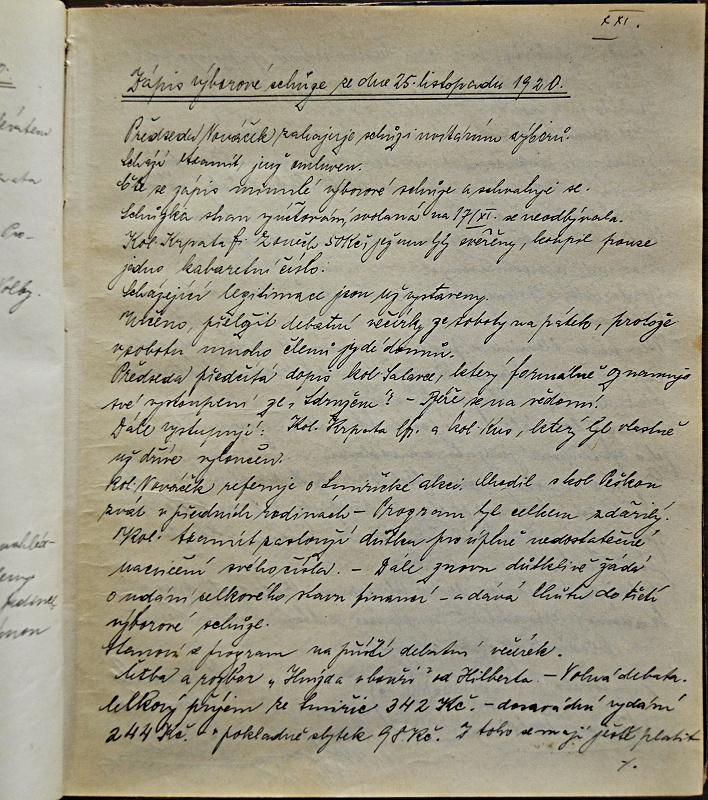 XXI.
Zápis výborové schůze ze dne 25. listopadu 1920.
Předseda Nováček zahajuje schůzi uvítáním výboru.
Schází Kramit, jený omluven.
Čte se zápis minulé výborové schůze a schvaluje se.
Schůzka stran zúčtování, svolaná na 17/XI. se neodbývala.
Kol. Krpata fr. žoněch 50 Kč, jež mu byly svěřeny, koupil pouze
jedno kabaretní číslo.
Scházející legitimace jsou už vystaveny.
Určeno, přeložit debatní večírky ze soboty na pátek, protože
v sobotu mnoho členů jede domů.
Předseda předčítá dopis kol. Salavce, který formálně oznamuje
své vystoupení ze "Sdružení" – Béře se na vědomí.
Dále vystupují: Kol. Krpata fr. a kol. Kus, který byl vlastně
už dříve vyloučen.
Kol. Nováček referuje o Smiřické akci. Chodil s kol. Peškou
zvát v předních rodinách – Program byl celkem zdařilý.
Kol. Kramit zasluhuje důtku pro úplně nedostatečné
nacvičení svého čísla. – Dále znovu důtklivě žádá
o udání celkového stavu financí – a dává lhůtu do třetí
výborové schůze.
Stanoví se program na příští debatní večírek.
Četba a rozbor „Hnízda v bouři" od Hilberta. – Volná debata.
Celkový příjem ze Smiřic 342 Kč. – dosavadní vydání
244 Kč. – pokladně zbytek 98 Kč. Z toho se mají ještě platit